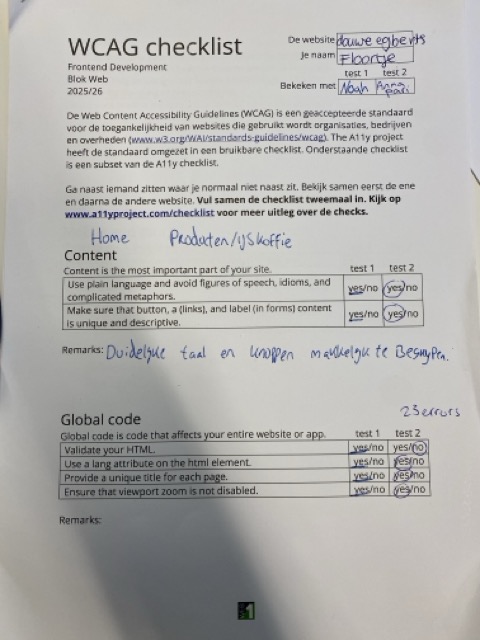 WCAG checklist
Frontend Development
Blok Web
2025/26
De website douwe egberts
Je naam Floortje
test 1 test 2
Bekeken met Noah Anna
De Web Content Accessibility Guidelines (WCAG) is een geaccepteerde standaard
voor de toegankelijkheid van websites die gebruikt wordt organisaties, bedrijven
en overheden (www.w3.org/WAI/standards-guidelines/wcag). The A11y project
heeft de standaard omgezet in een bruikbare checklist. Onderstaande checklist
is een subset van de A11y checklist.
Ga naast iemand zitten waar je normaal niet naast zit. Bekijk samen eerst de ene
en daarna de andere website. Vul samen de checklist tweemaal in. Kijk op
www.a11yproject.com/checklist voor meer uitleg over de checks.
Home Producten/ijskoffie
Content
Content is the most important part of your site. test 1 test 2
Use plain language and avoid figures of speech, idioms, and yes/no yes/no
complicated metaphors.
Make sure that button, a (links), and label (in forms) content yes/no yes/no
is unique and descriptive.
Remarks: Duidelijke taal en knoppen makkelijk te Begrijpen.
23 errors
Global code
Global code is code that affects your entire website or app. test 1 test 2
Validate your HTML. yes/no yes/no
Use a lang attribute on the html element. yes/no yes/no
Provide a unique title for each page. yes/no yes/no
Ensure that viewport zoom is not disabled. yes/no yes/no
Remarks:
1